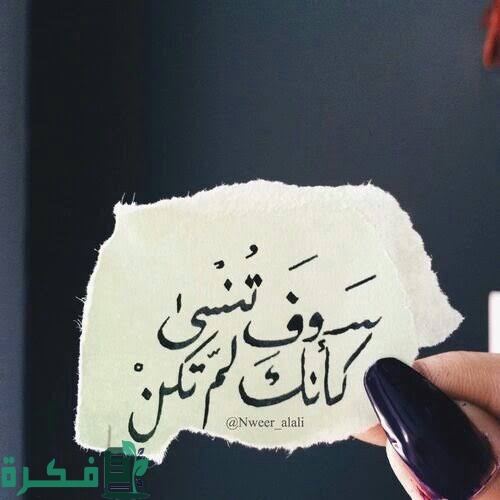 سَوفَ تُنْسىٰ
كأنكَ لمّ تكنْ
@Nweer_alali
فكرة